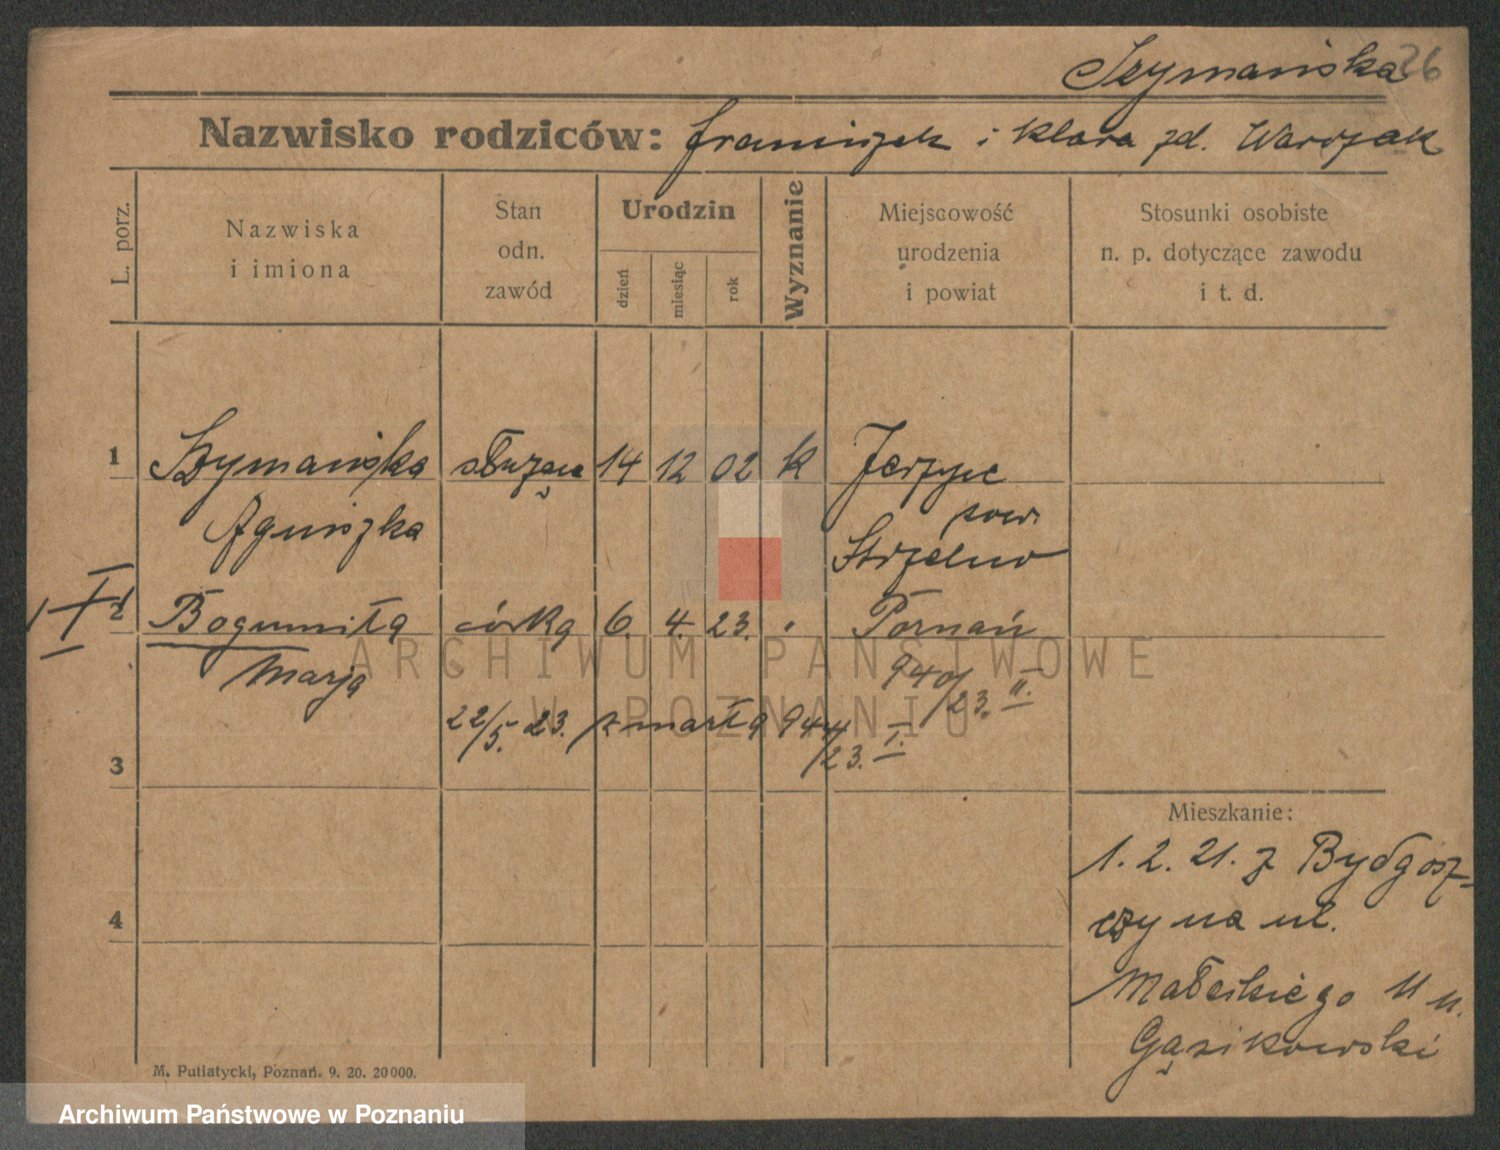 Szymańska 26
Nazwisko rodziców: Franciszek i Klara zd. Warszak
L. porz.
Nazwiska
i imiona
Stan
odn.
zawód
Urodzin
dzień
miesiąc
rok
Wyznanie
Miejscowość
urodzenia
i powiat
Stosunki osobiste
n. p. dotyczące zawodu
i t. d.
1 Szymańska służąca 14 12 02 k Jerzyce
pow.
Agniszka Strzelno
2 Bogumiła córka 6. 4. 23. Poznań
Marja 940/23. II.
22/5. 23. zmarła 944/23. I.
3
Mieszkanie:
1. 2. 21. z Bydgosz-
czy na ul.
4
Małeckiego 11 u.
Gąsikowski
M. Putiatycki, Poznań. 9. 20. 20000.
ARCHIWUM PAŃSTWOWE
W POZNANIU
Archiwum Państwowe w Poznaniu